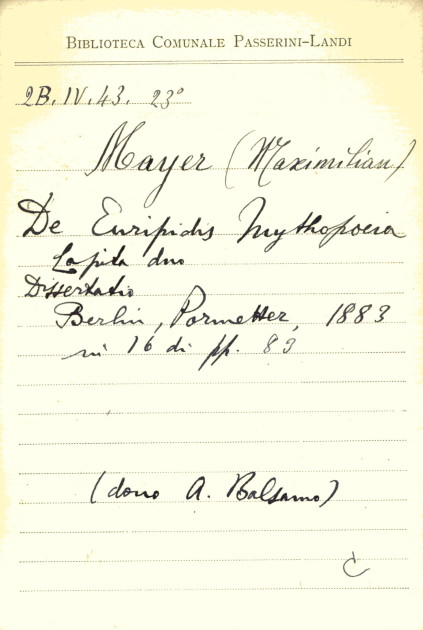 BIBLIOTECA COMUNALE PASSERINI-LANDI
2B. IV. 43. 23°
Mayer (Maximilian)
De Euripidis Mythopoeia
Capita duo
Dissertatio
Berlin, Pormetter, 1883
in 16 di pp. 83
(dono A. Balsamo)
C